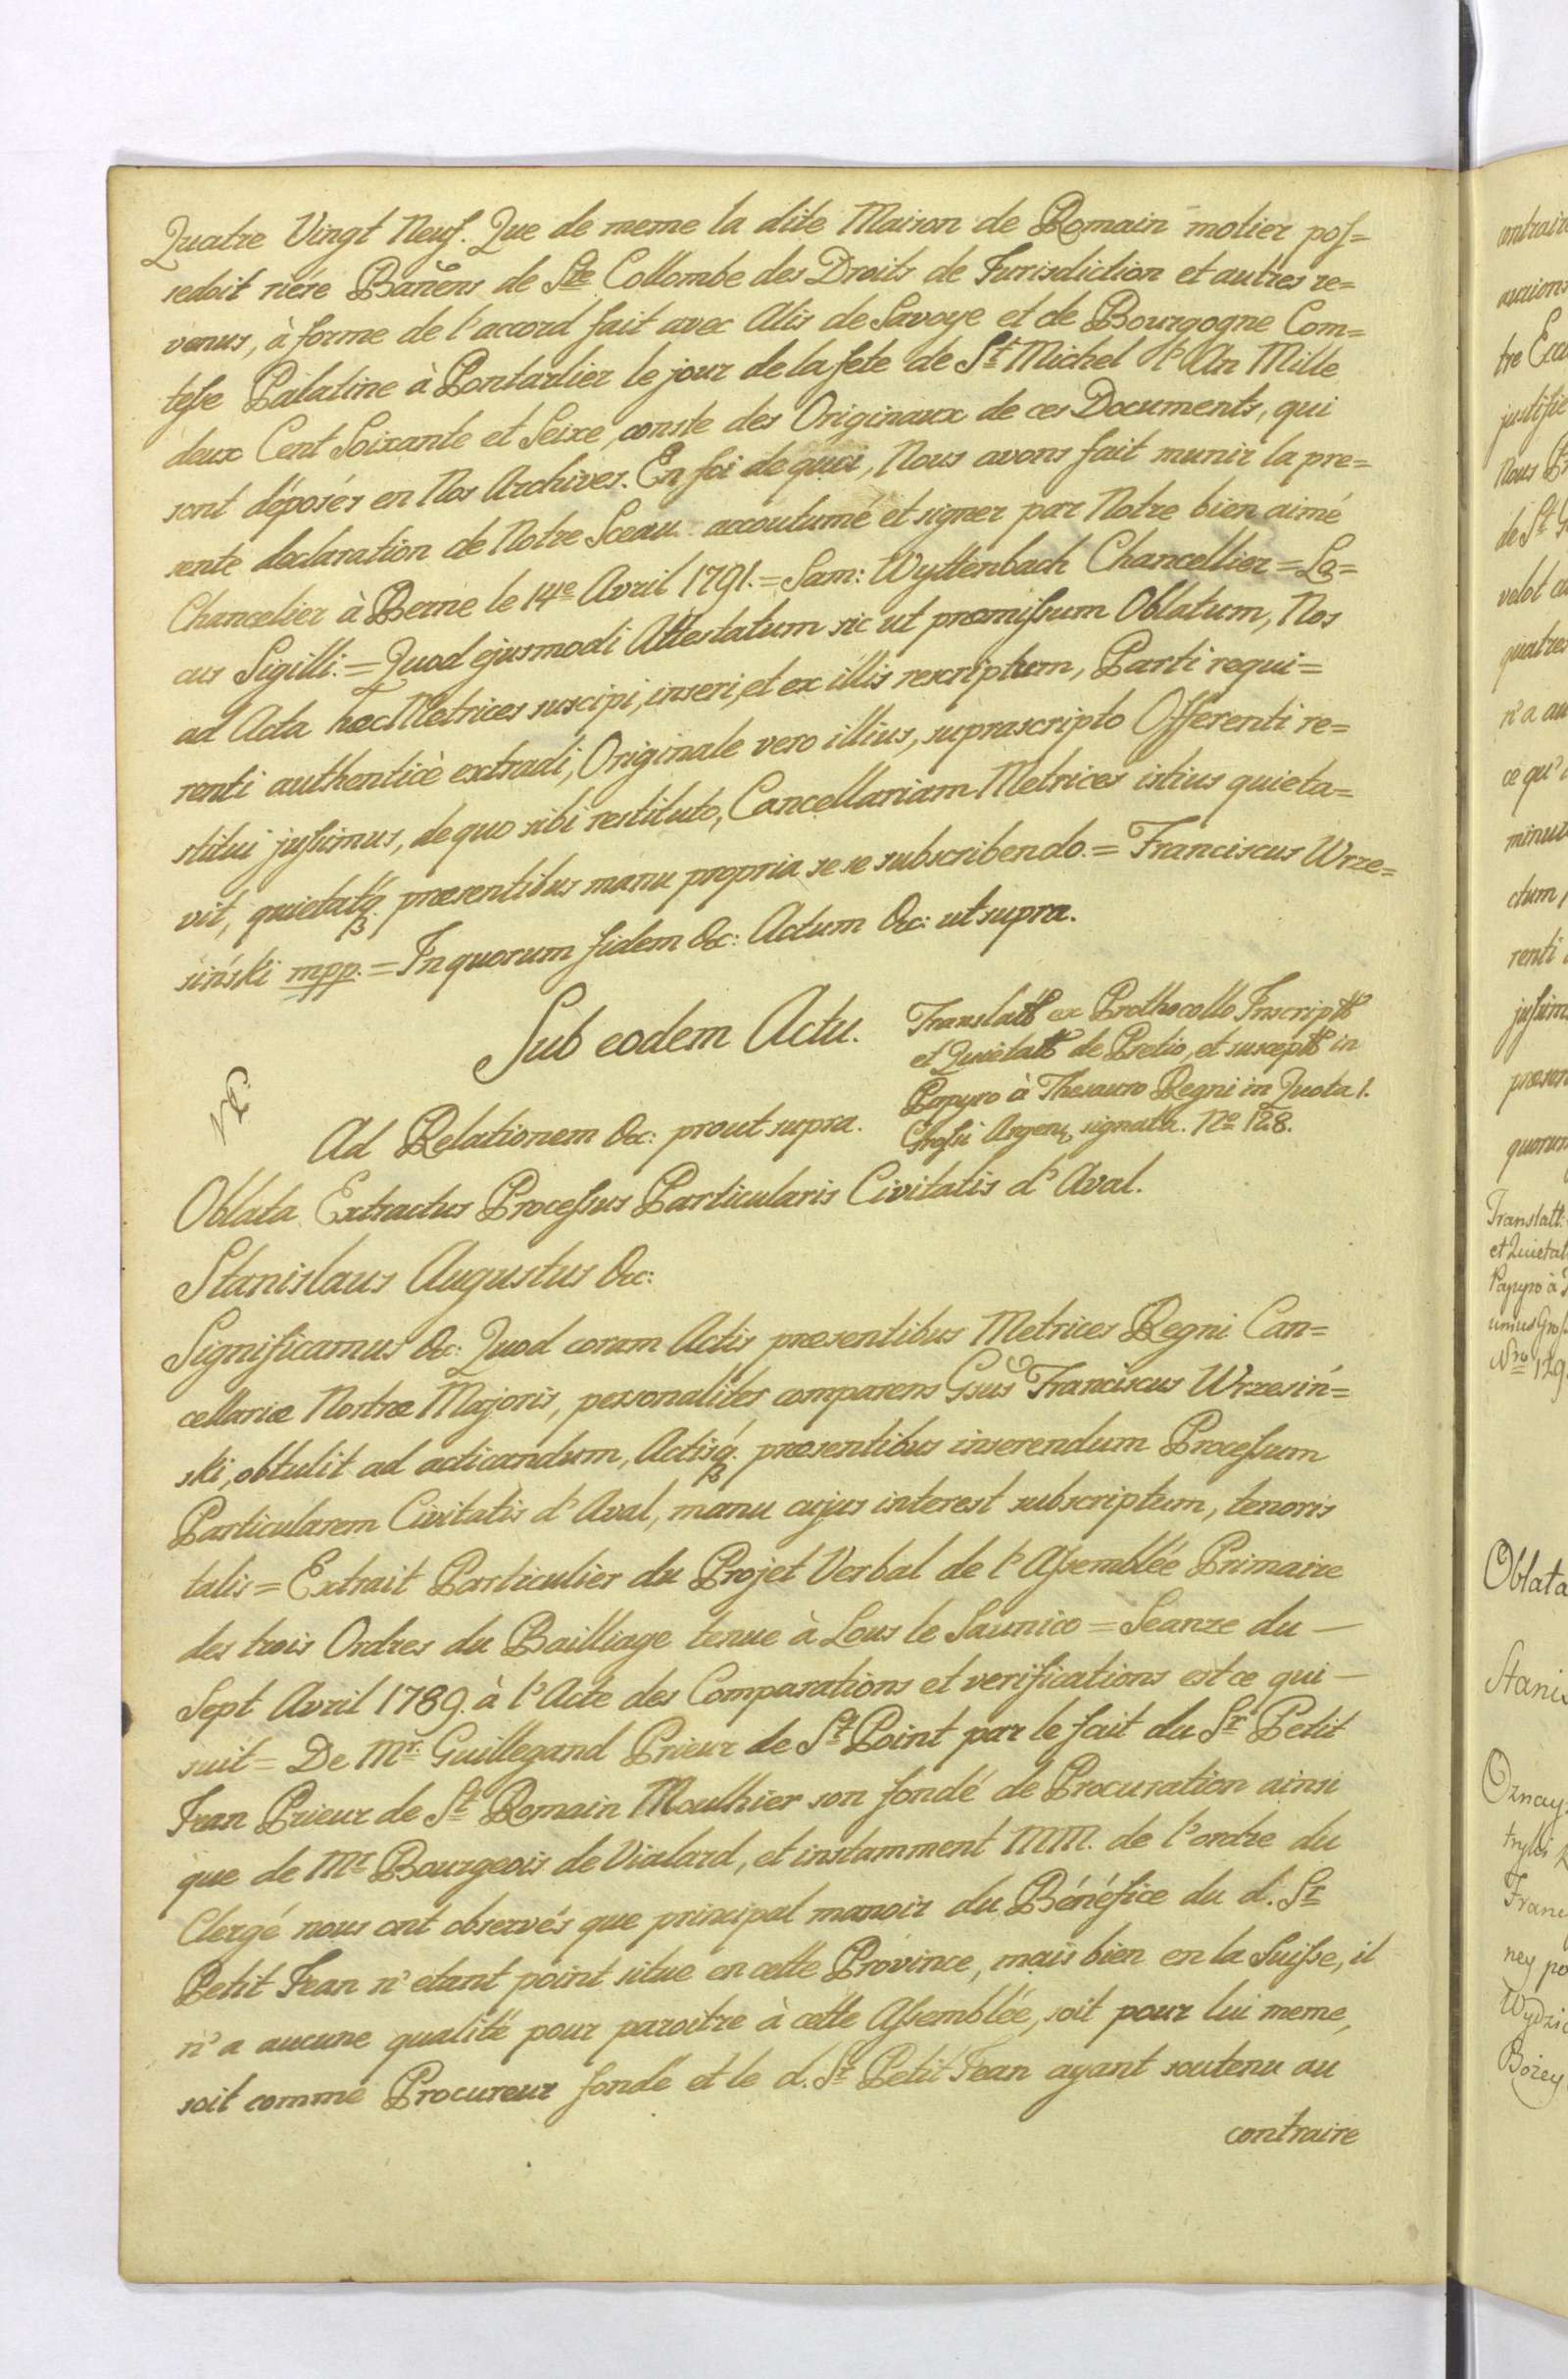 Quatre Vingt Neuf. Que de meme la dite Maison de Romain motier pos=
sedoit riére Banens de Ste Collombe des Droits de Jurisdiction et autres re=
venus, à forme de l'accord fait avec Alis de Savoye et de Bourgogne Com=
tesse Palatine à Pontarlier le jour de la fete de St Michel l'An Mille
deux Cent Soixante et Seixe, conste des Originaux de ces Documents, qui
sont déposés en Nos Archives. En foi de quoi, Nous avons fait munir la pre=
sente declaration de Notre Sceau accoutumé et signer par Notre bien aimé
Chancelier à Berne le 14e Avril 1791. = Sam: Wyttenbach Chancellier = Lo=
cus Sigilli. = Quod ejusmodi Attestatum sic ut præmissum Oblatum, Nos
ad Acta hæc Metrices suscipi, inseri, et ex illis rescriptum, Parti requi=
renti authenticè extradi, Originale vero illius, suprascripto Offerenti re=
stitui jussimus, de quo sibi restituto, Cancellariam Metrices istius quieta=
vit, quietatq. præsentibus manu propria se se subscribendo. = Franciscus Wrze=
siński mpp. = In quorum fidem &c: Actum &c: ut supra.
Sub eodem Actu.
Translatt ex Prothocollo Inscriptt
et Quietatt de Pretio, et susceptt in
Papyro à Thesauro Regni in Quota 1.
Grossi Argen, signatti. No 128.
Ad Relationem &c: prout supra.
Oblata Extractus Processus Particularis Civitatis d'Aval.
Stanislaus Augustus &c:
Significamus &c: Quod coram Actis præsentibus Metrices Regni Can=
cellariæ Nostræ Majoris, personaliter comparens Gsus Franciscus Wrzesiń=
ski, obtulit ad acticandum, Actisq. præsentibus inserendum Processum
Particularem Civitatis d'Aval, manu cujus interest subscriptum, tenoris
talis = Extrait Particulier du Projet Verbal de l'Assemblée Primaire
des trois Ordres du Bailliage tenue à Lous le Saunico = Seanze du —
Sept Avril 1789. à l'Acte des Comparations et verifications est ce qui —
suit = De Mr. Guillegand Prieur de St Point par le fait du Sr Petit
Jean Prieur de St Romain Moulhier son fondé de Procuration ainsi
que de Mr Bourgeois de Vialard, et instamment MM. de l'ordre du
Clergé nous ont observés que principal manoir du Bénéfice du d. Sr
Petit Jean n'etant point situe en cette Province, mais bien en la Suisse, il
n'a aucune qualité pour paroitre à cette Assemblée, soit pour lui meme,
soit comme Procureur fondé et le d. Sr Petit Jean ayant soutenu au
contraire